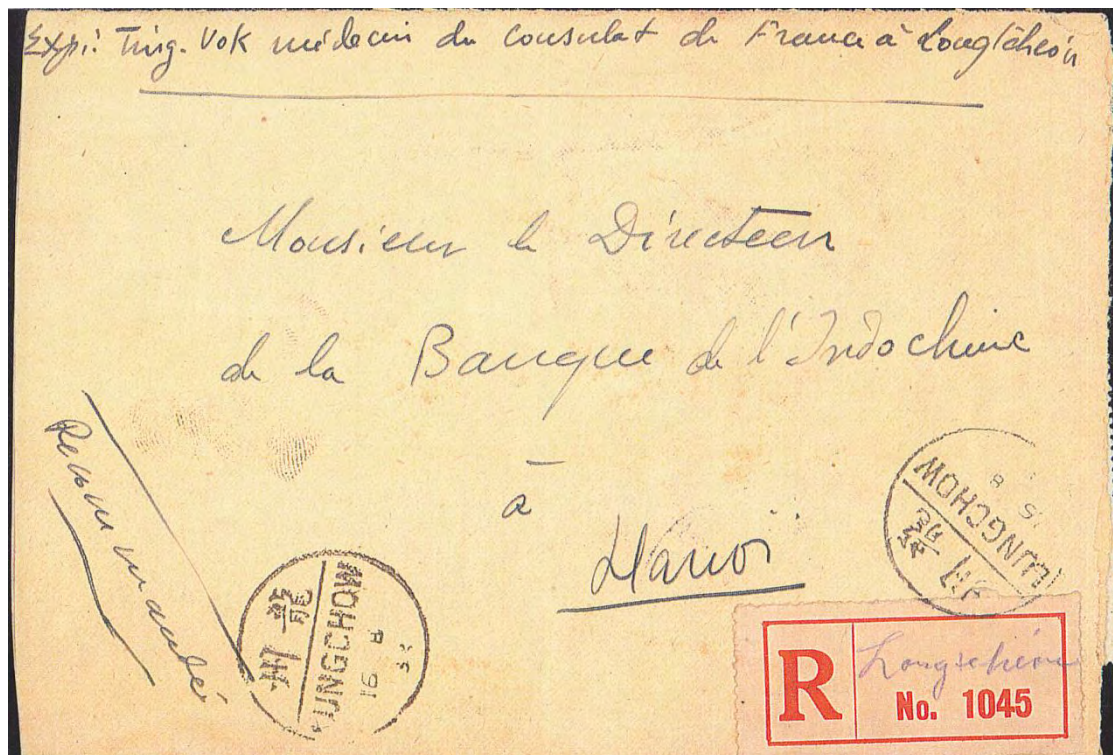 Expé: Ting. Vok médecin du consulat de France à Longtchéou
Monsieur le Directeur
de la Banque de l'Indochine
à
Hanoï
Recommandé
龍州
LUNGCHOW
16 8
龍州
LUNGCHOW
8
R
Longtchéou
No. 1045